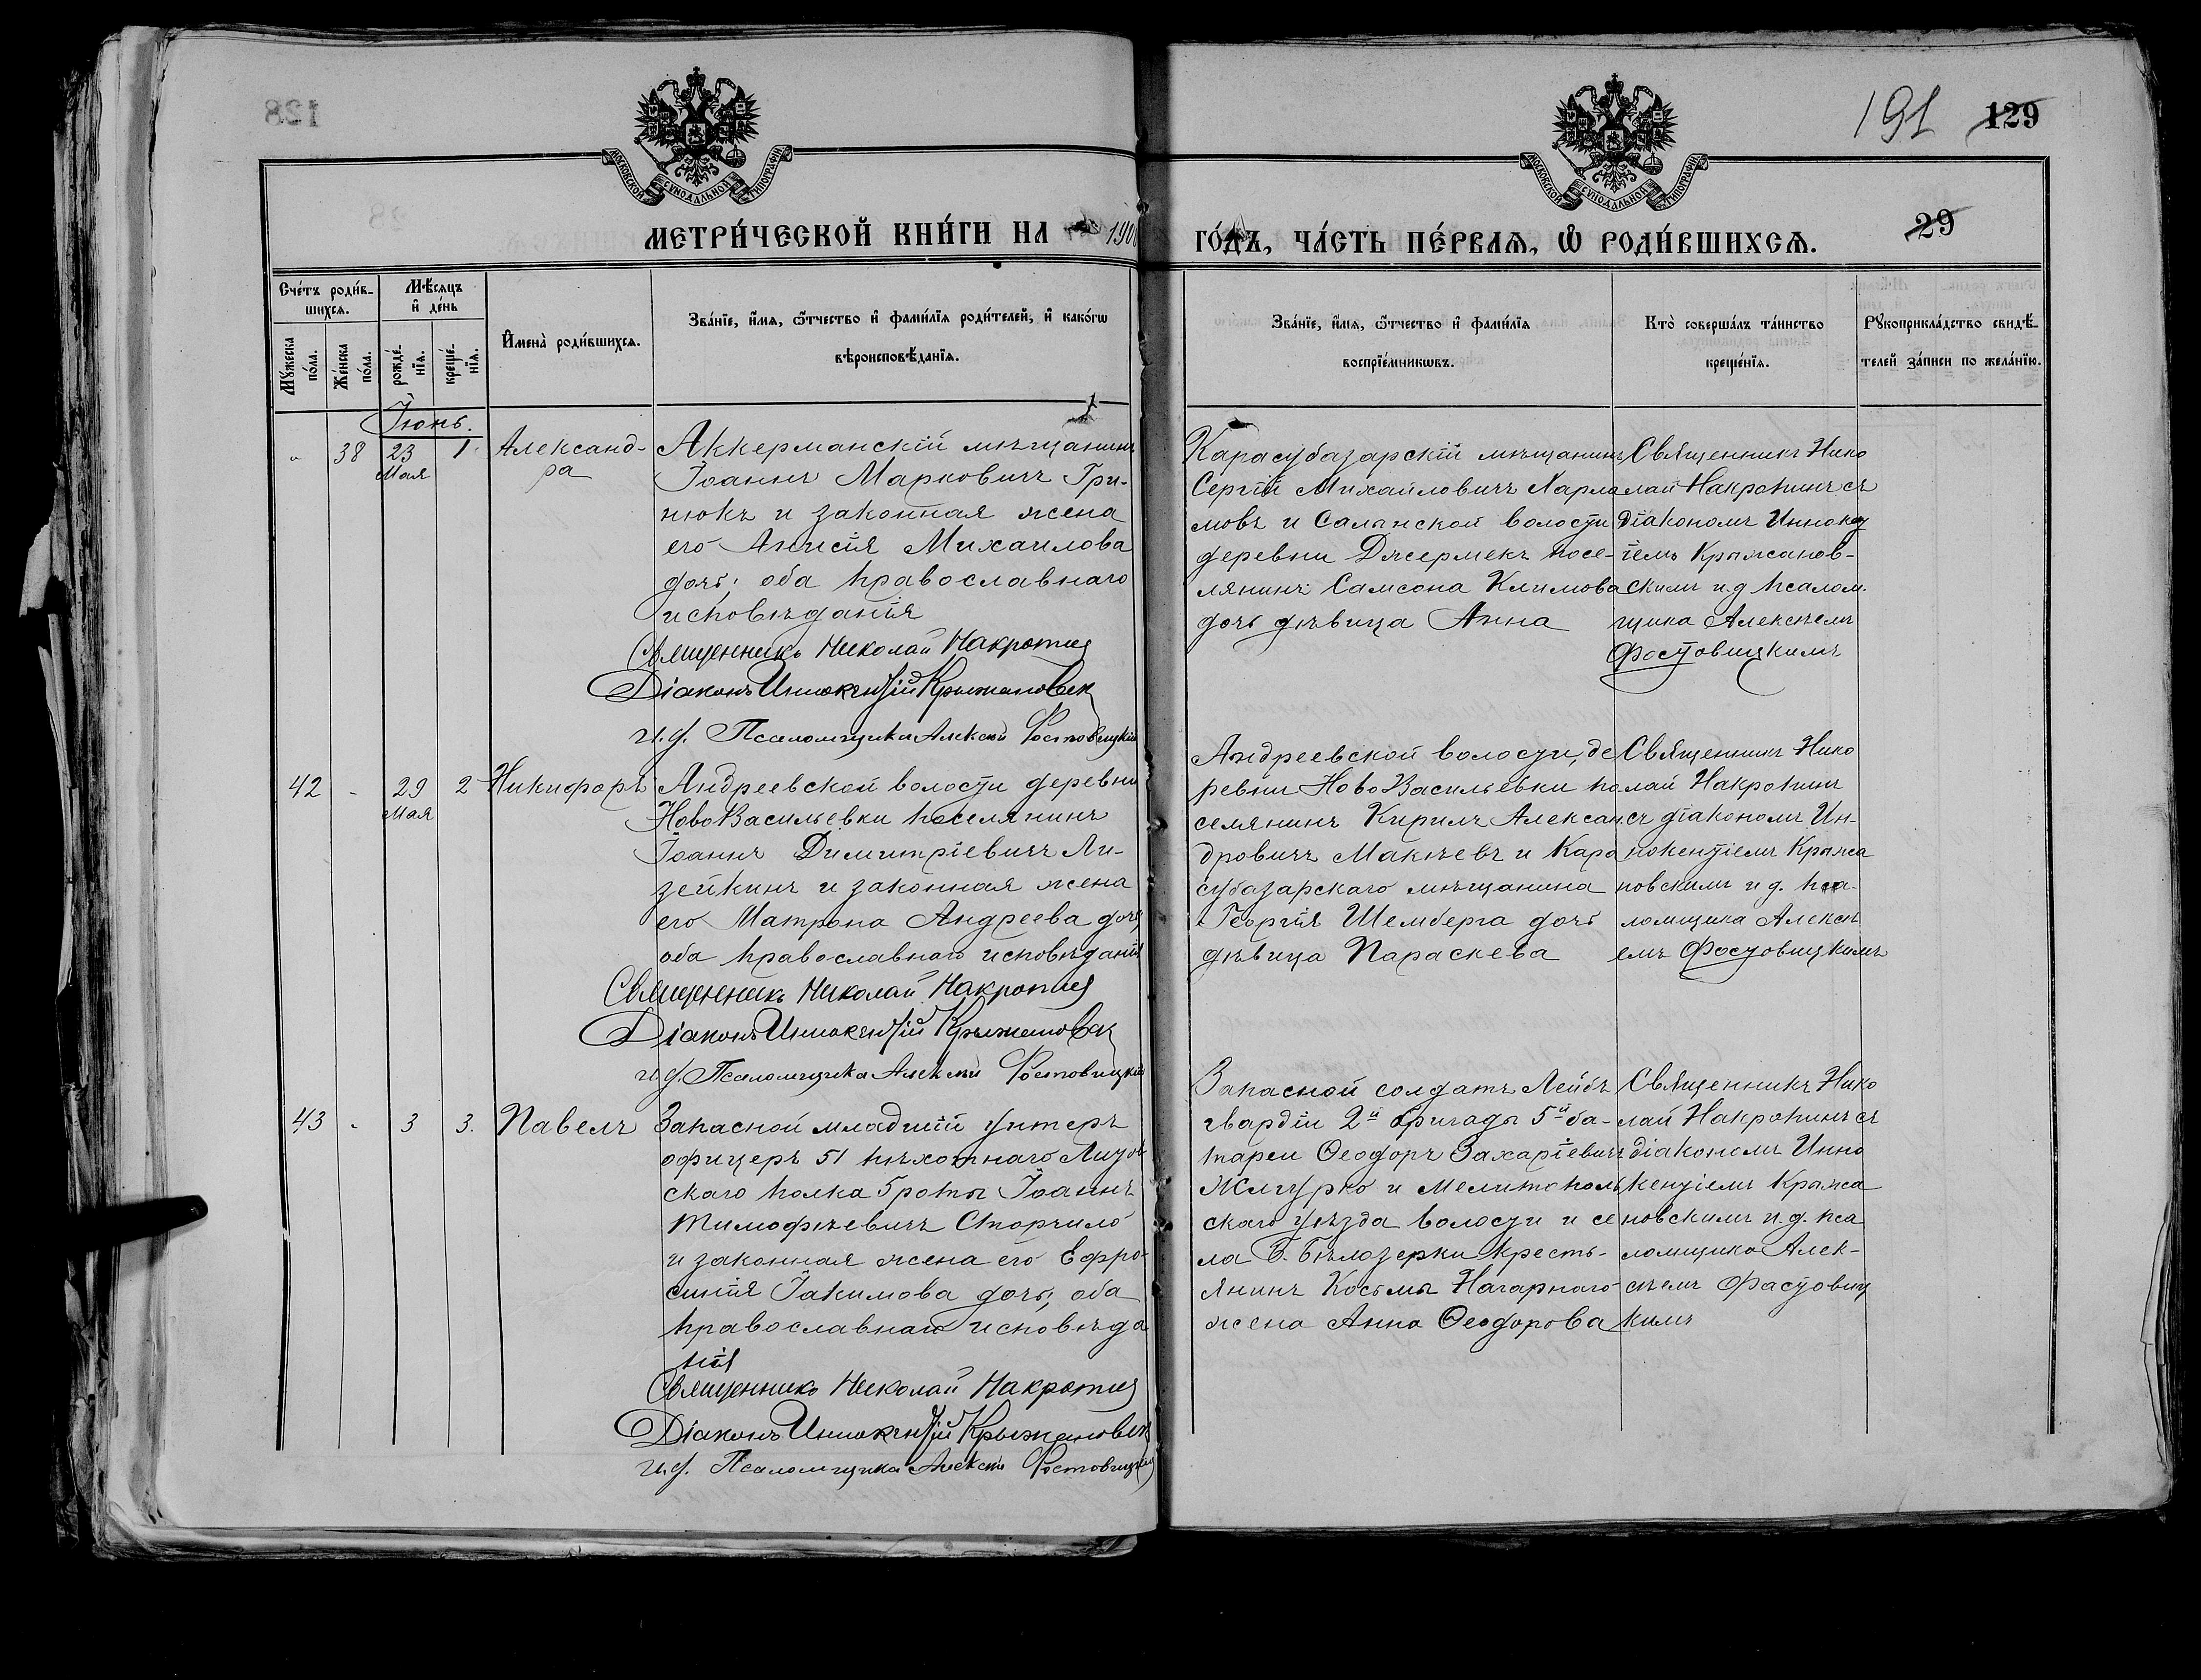 191 129
МОСКОВСКОЙ СѴНОДАЛЬНОЙ ТИПОГРАФІИ
МОСКОВСКОЙ СѴНОДАЛЬНОЙ ТИПОГРАФІИ
29
МЕТРИ́ЧЕСКОЙ КНИ́ГИ НА 190
ГО́ДЪ, ЧА́СТЬ ПЕ́РВАѦ, Ѿ РОДИ́ВШИХСѦ.
Сче́тъ роди́в-
шихсѧ.
Мꙋ́жеска по́ла.
Же́нска по́ла.
Мѣ́сѧцъ
и҆ де́нь
рожде́-
нїѧ.
креще́-
нїѧ.
И҆мена̀ роди́вшихсѧ.
Зва́нїе, и҆́мѧ, ѻ҆́тчество и҆ фами́лїѧ роди́телей, и҆ како́гѡ
вѣроисповѣ́данїѧ.
Зва́нїе, и҆́мѧ, ѻ҆́тчество и҆ фами́лїѧ
воспрїе́мникѡвъ.
Кто̀ соверша́лъ та́инство
креще́нїѧ.
Рꙋкоприкла́дство свидѣ́-
телей за́писи по жела́нїю.
Іюнь.
" 38 23 1 Александ-
Мая ра
Аккерманскій мѣщанинъ
Іоаннъ Марковичъ Гри-
нюкъ и законная жена
его Анисія Михаилова
дочь; оба православнаго
исповѣданія
Священникъ Николай Накропин
Діаконъ Иннокентій Крыжановск
и.д. Псаломщика Алексій Фостовицкій
Карасубазарскій мѣщанинъ
Сергій Михайловичъ Харла
мовъ и Саланской волости
деревни Джермекъ посе-
лянинъ Самсона Климова
дочь дѣвица Анна
Священникъ Нико
лай Накропинъ съ
діакономъ Иннокен
тіемъ Крыжанов-
скимъ и.д псалом-
щика Алексѣемъ
Фостовицкимъ
42 - 29 2 Никифоръ
Мая
Андреевской волости деревни
НовоВасильевки поселянинъ
Іоаннъ Димитріевичъ Ли-
зейкинъ и законная жена
его Матрона Андреева дочь,
оба православнаго исповѣданія
Священникъ Николай Накропин
Діаконъ Иннокентій Крыжановск
и.д. Псаломщика Алексій Фостовицкій
Андреевской волости, де
ревни НовоВасильевки по
селянинъ Кирилъ Алексан
дровичъ Макѣевъ и Кара
субазарскаго мѣщанина
Георгія Шемберга дочь
дѣвица Параскева
Священникъ Нико
лай Накропинъ
съ діакономъ Ин-
нокентіемъ Крыжа
новскимъ и д. пса-
ломщика Алексѣ
емъ Фостовицкимъ
43 - 3 3. Павелъ
Запасной младшій унтеръ
офицеръ 51 пѣхотнаго Литов
скаго полка 5 роты Іоаннъ
Тимофѣевичъ Сторчило
и законная жена его Ефро-
синія Іакимова дочь, оба
православнаго исповѣда
нія
Священникъ Николай Накропин
Діаконъ Иннокентій Крыжановск
и.д. Псаломщика Алексій Фостовицкій
Запасной солдатъ Лейбъ
гвардіи 2й бригады 5й ба-
тареи Ѳеодоръ Захаріевичъ
и Мелитополь
скаго уѣзда волости и се
ла Б. Бѣлозерки кресть-
янинъ Косьмы Нагарнаго
жена Анна Ѳеодорова
Священникъ Нико
лай Накропинъ съ
діакономъ Инно
кентіемъ Крыжа
новскимъ и.д. пса
ломщика Алек-
сѣемъ Фастовиц
кимъ